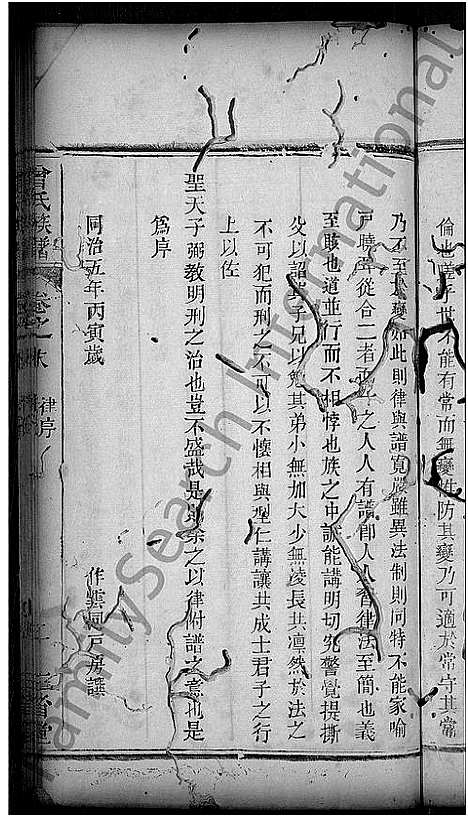 倫也蓋存世不能有常而無變惟防其變乃可適於常守其常
乃不至其變如此則律與譜寬嚴雖異法制則同特不能家喻
戶曉耳從合二者而一之人人有譜卽人人習律法至簡也義
至賅也道並行而不相悖也族之中誠能講明切究警覺提撕
父以詔其子兄以勉其弟小無加大少無凌長共凜然於法之
不可犯而刑之不可以不懷相與型仁講讓共成士君子之行
上以佐
聖天子弼教明刑之治也豈不盛哉是則余之以律附譜之意也是
爲序
同治五年丙寅歲
作雲 戶房謹
曾氏族譜
卷之末
律序
堂
FamilySearch International